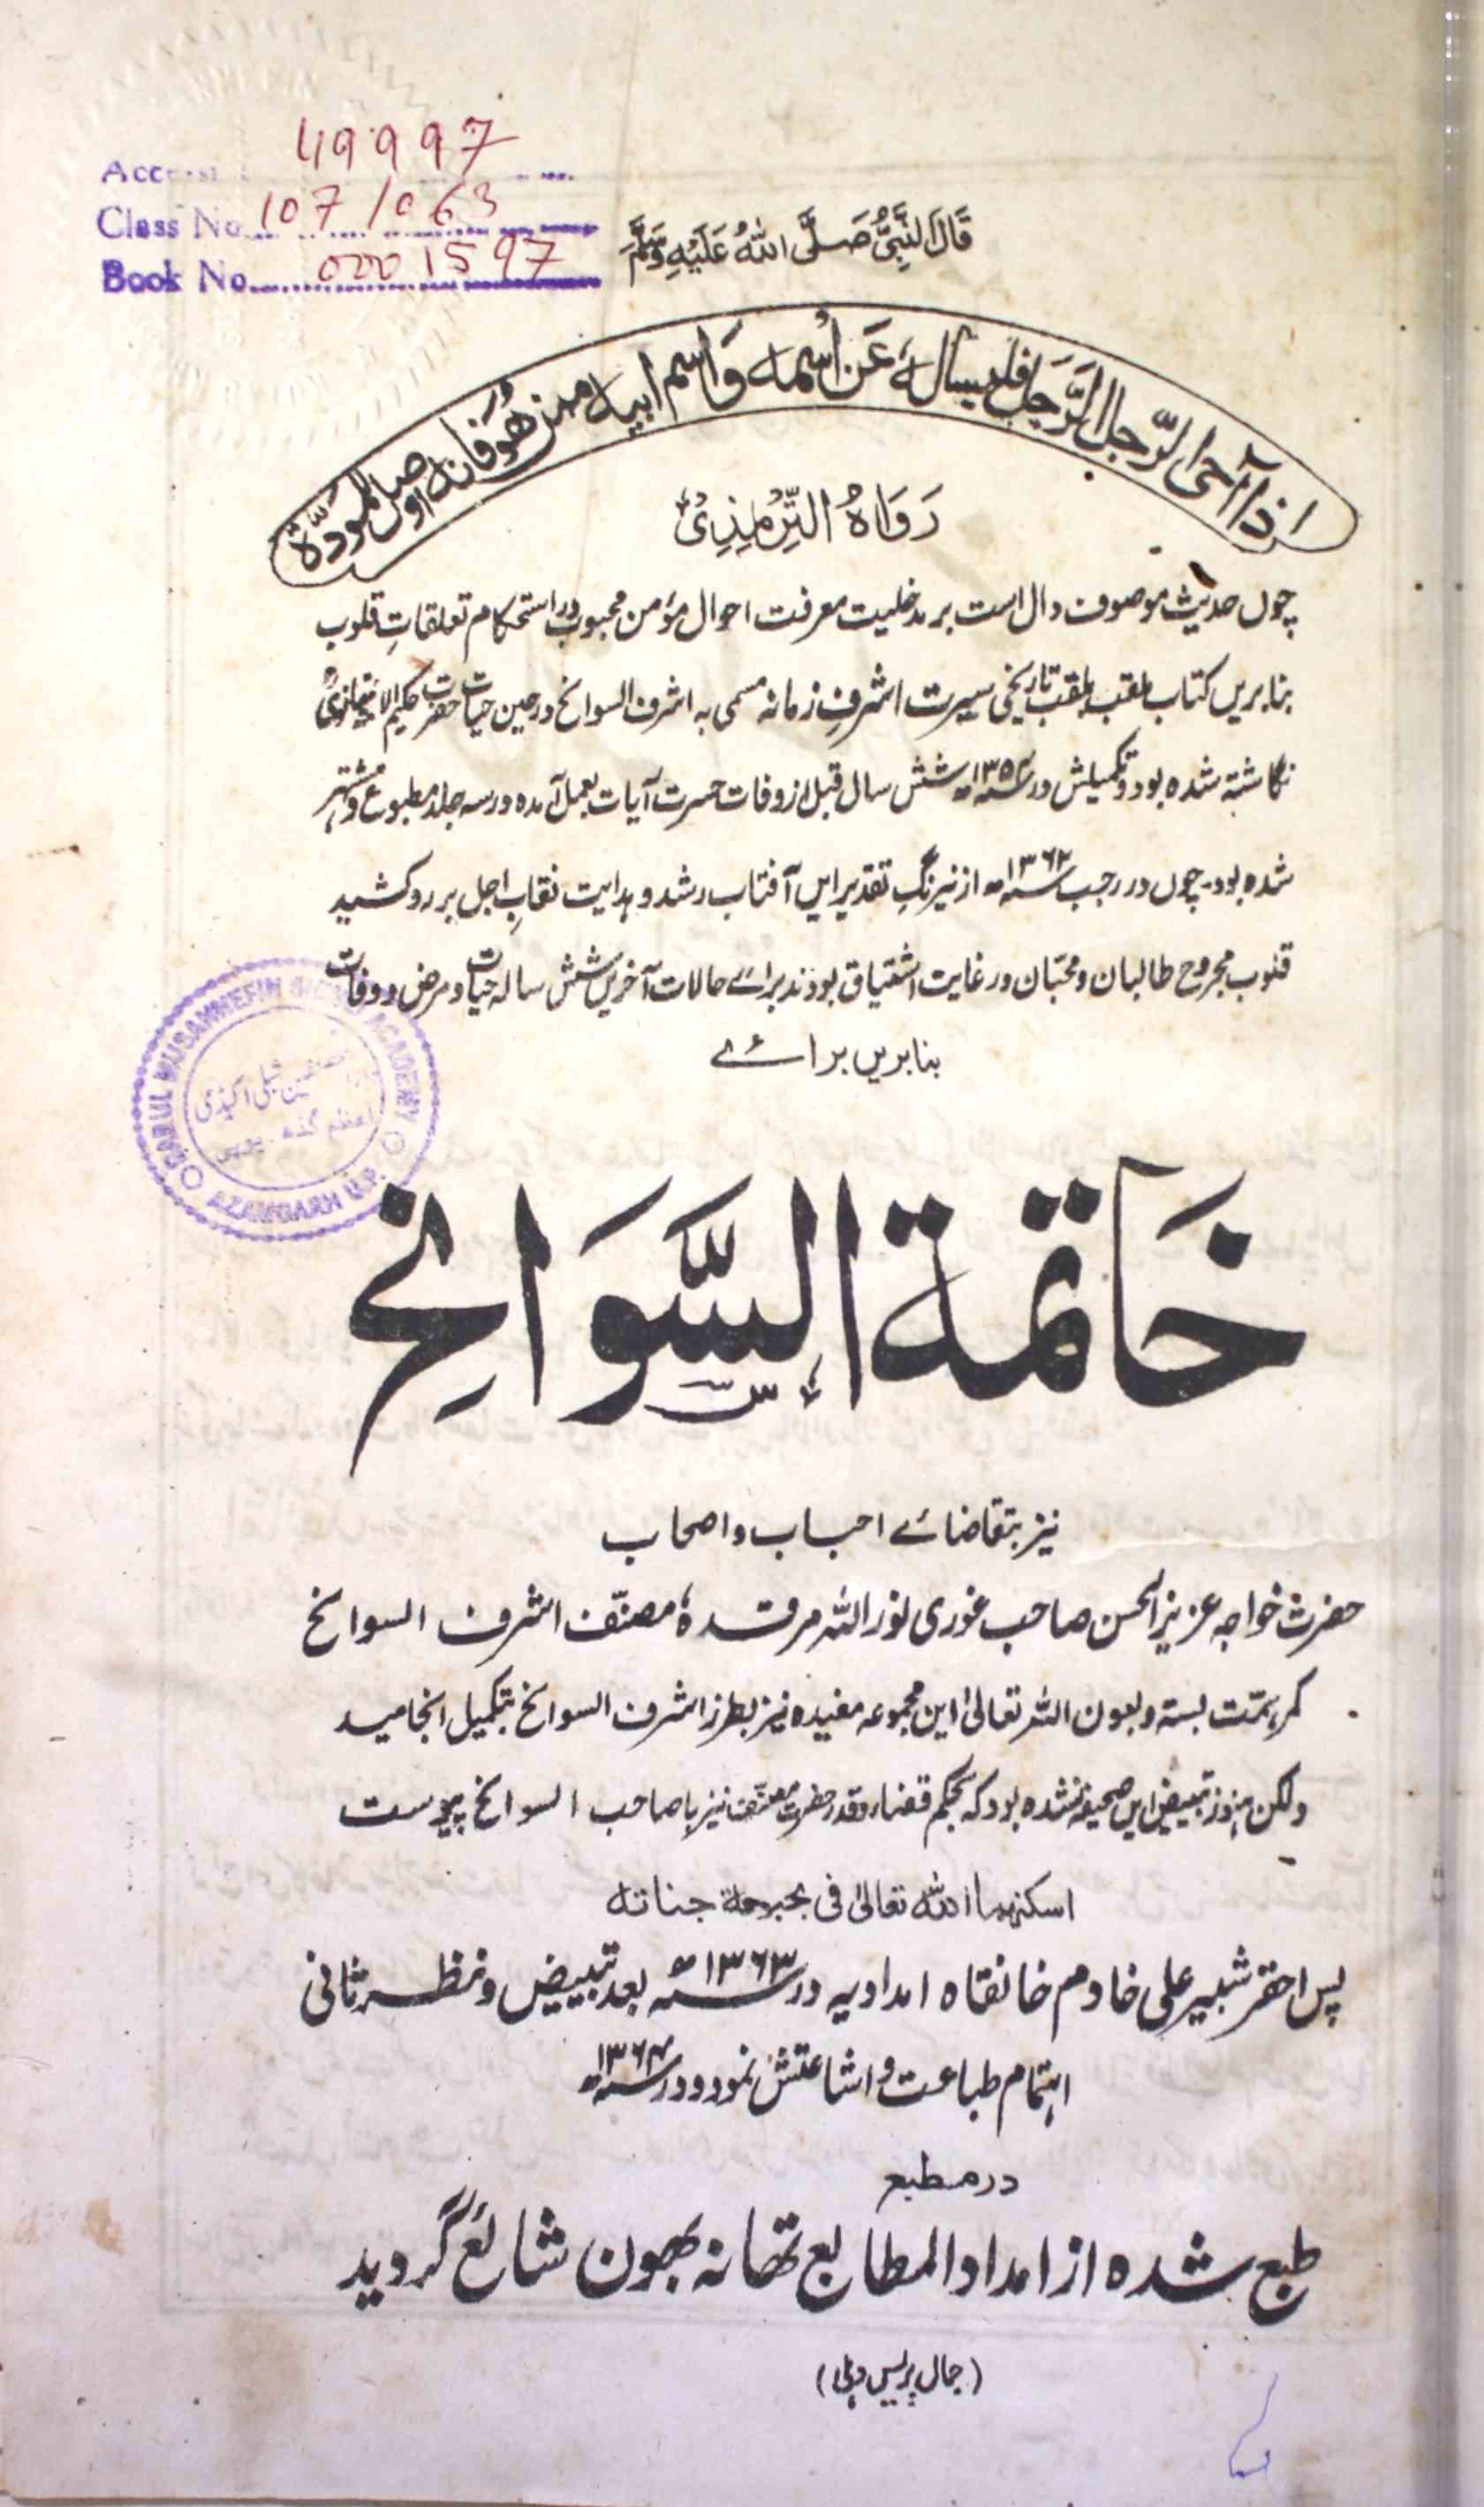 49997
Class No. 107/063
Book No. 0001597
قَالَ النَّبِيُّ صَلَّى اللّٰهُ عَلَيْهِ وَسَلَّمَ
اذا آخى الرّجل الرَّجل فليسأله عَن اسْمه وَاسم ابيه ممن هُوَ فانه اوصل للمودّة
رَوَاهُ التِّرْمِذِيُّ
چوں حدیث موصوف دال است بر مدخلیت معرفت احوال مؤمن محبوب در استحکام تعلقاتِ قلوب
بنابریں کتاب ملقب بلقب تاریخی سیرت اشرفِ زمانہ مسمی بہ اشرف السوانح در حین حیات حضرت حکیم الامۃ تھانویؒ
نگاشتہ شدہ بود و تکمیلش در ۱۳۵۴ھ شش سال قبل از وفات حسرت آیات بعمل آمدہ در سہ جلد مطبوع و مشتہر
شدہ بود۔ چوں در رجب ۱۳۶۲ھ از نیرنگِ تقدیر ایں آفتاب رشد و ہدایت نقابِ اجل بر رو کشید
قلوب مجروح طالبان و محبّان در غایت اشتیاق بودند برائے حالات آخریں شش سالہ حیات و مرض و وفات
بنابریں برائے
خَاتمة السَّوَانِح
نیز بتقاضائے احباب و اصحاب
حضرت خواجہ عزیز الحسن صاحب غوری نور اللہ مرقدہٗ مصنّف اشرف السوانح
کمر ہمّت بستہ و بعون اللہ تعالیٰ این مجموعہ مفیدہ نیز بطرز اشرف السوانح بتکمیل انجامید
ولکن ہنوز تبییض ایں صحیفہ نشدہ بود کہ بحکم قضاء و قدر حضرت مصنّف نیز باصاحب السوانح پیوست
اسكنهما الله تعالىٰ فی بحبوحة جناته
پس احقر شبیر علی خادم خانقاہ امدادیہ در ۱۳۶۳ھ بعد تبییض و نظر ثانی
اہتمام طباعت و اشاعتش نمود و در ۱۳۶۴ھ
در مطبع
طبع شدہ از امداد المطابع تھانہ بھون شائع گردید
(جمال پریس دہلی)
DARUL MUSANNEFIN SHIBLI ACADEMY
AZAMGARH U.P.
شبلی اکیڈمی
اعظم گڈھ